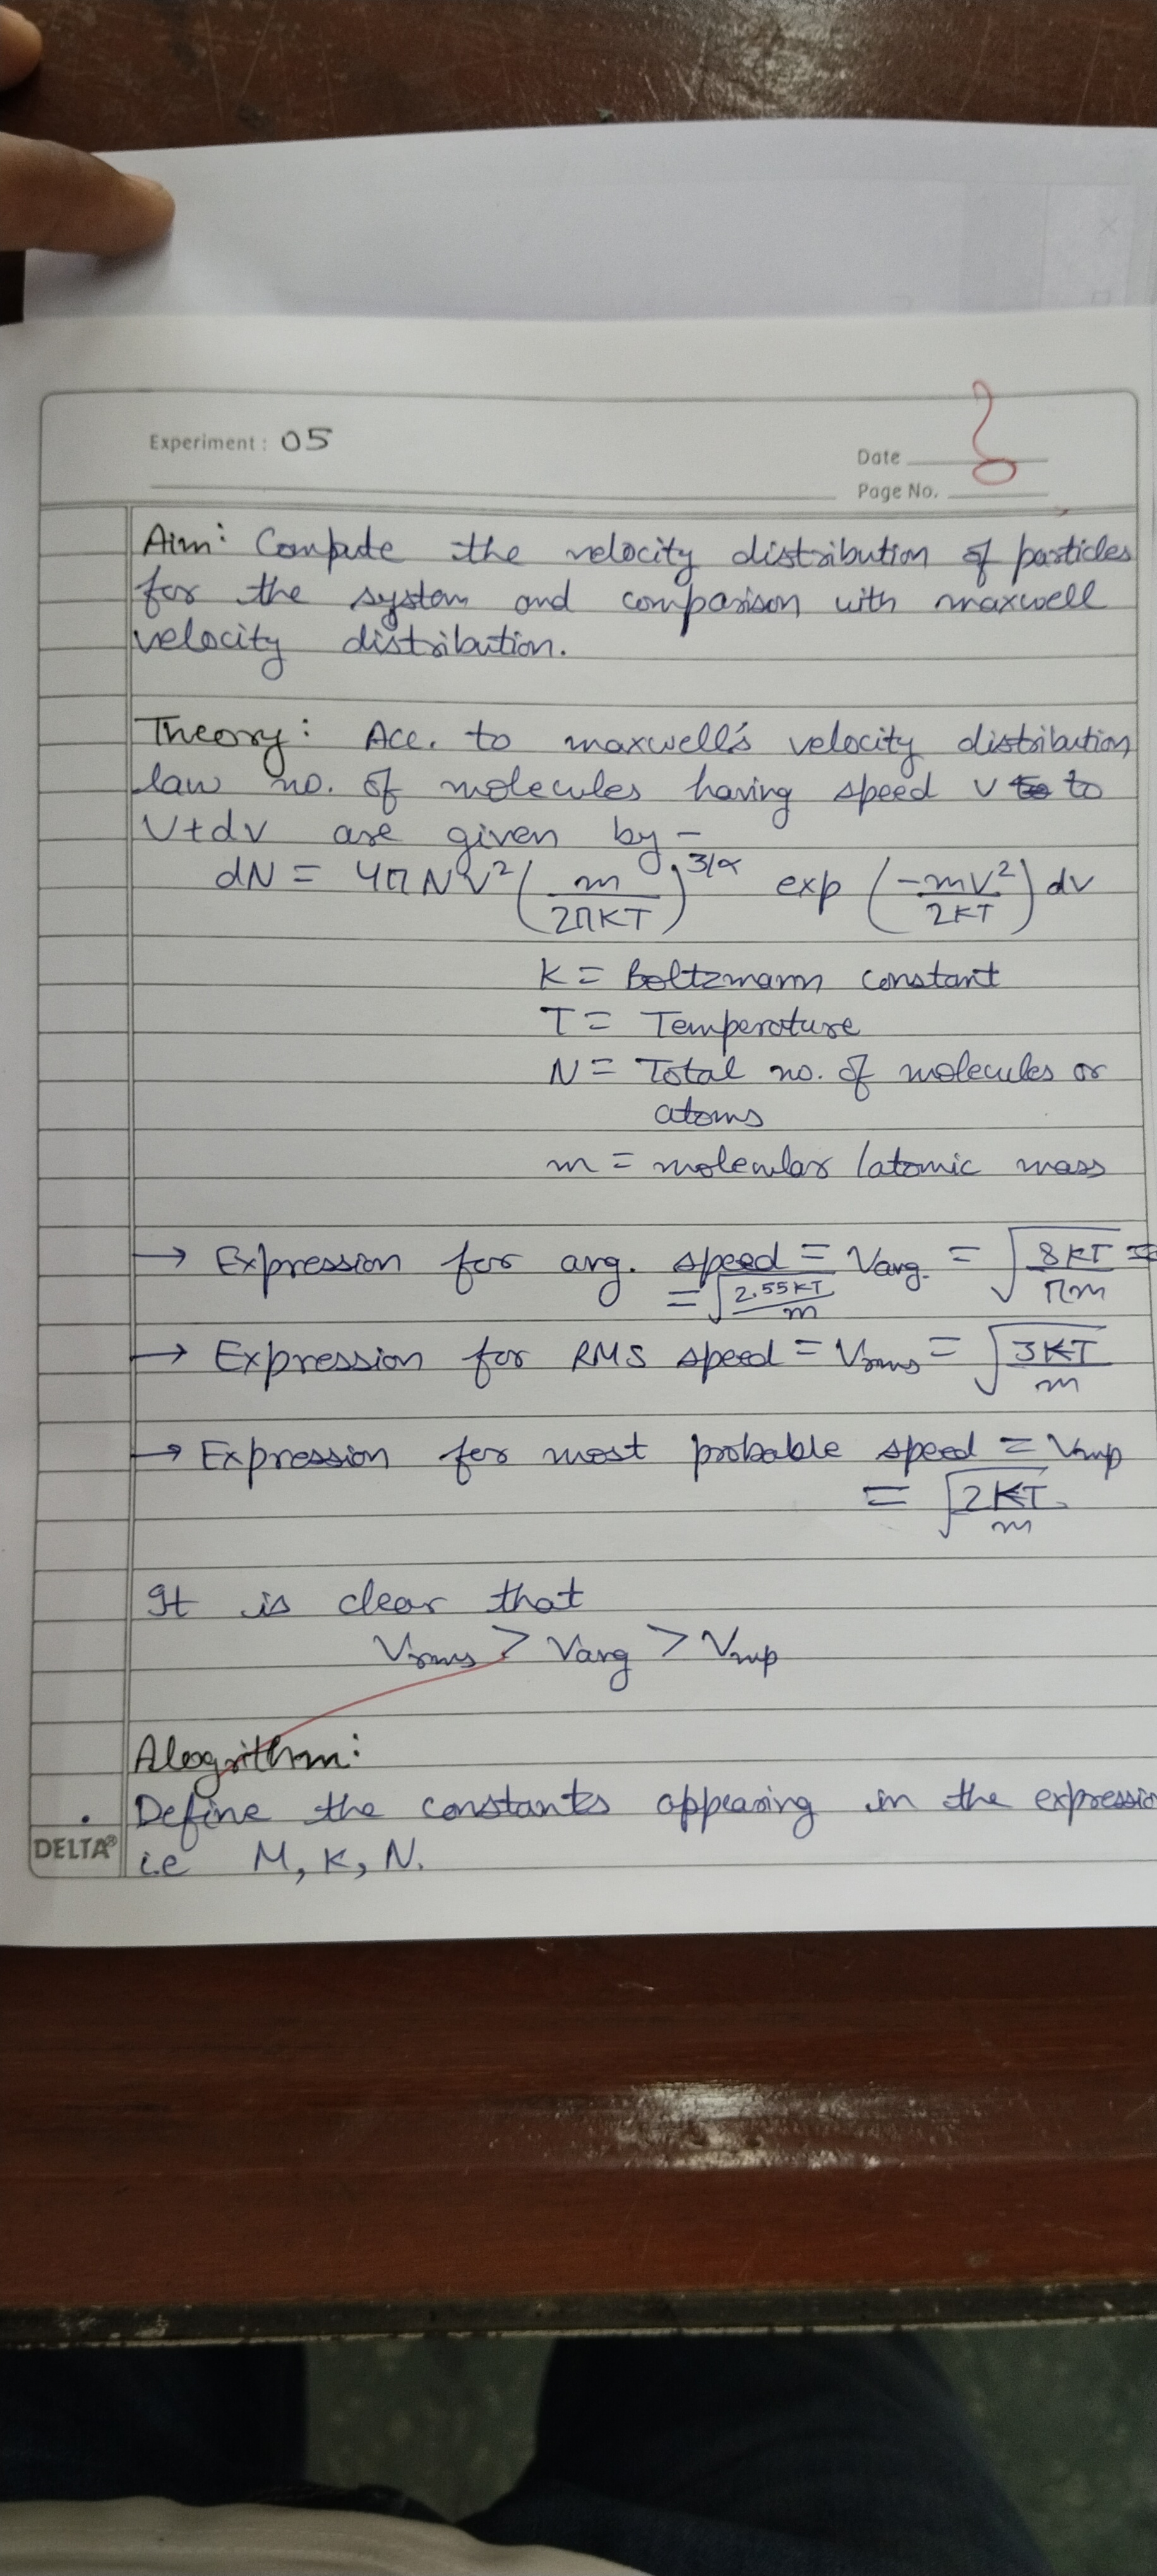 Experiment : 05
Date
Page No.
Aim: Compute the velocity distribution of particles
for the system and comparison with maxwell
velocity distribution.
Theory: Acc. to maxwell's velocity distribution
law no. of molecules having speed v to to
V+dv are given by -
dN = 4πNV² (m/2πKT)^3/2 exp (-mv²/2KT) dv
K = Boltzmann constant
T = Temperature
N = Total no. of molecules or
atoms
m = molecular / atomic mass
→ Expression for avg. speed = Vavg. = √8KT/πm =
= √2.55KT/m
→ Expression for RMS speed = Vrms = √3KT/m
→ Expression for most probable speed = Vmp
= √2KT/m
It is clear that
Vrms > Vavg > Vmp
Alogrithm:
. Define the constants appearing in the expressio
i.e M, K, N.
DELTA®